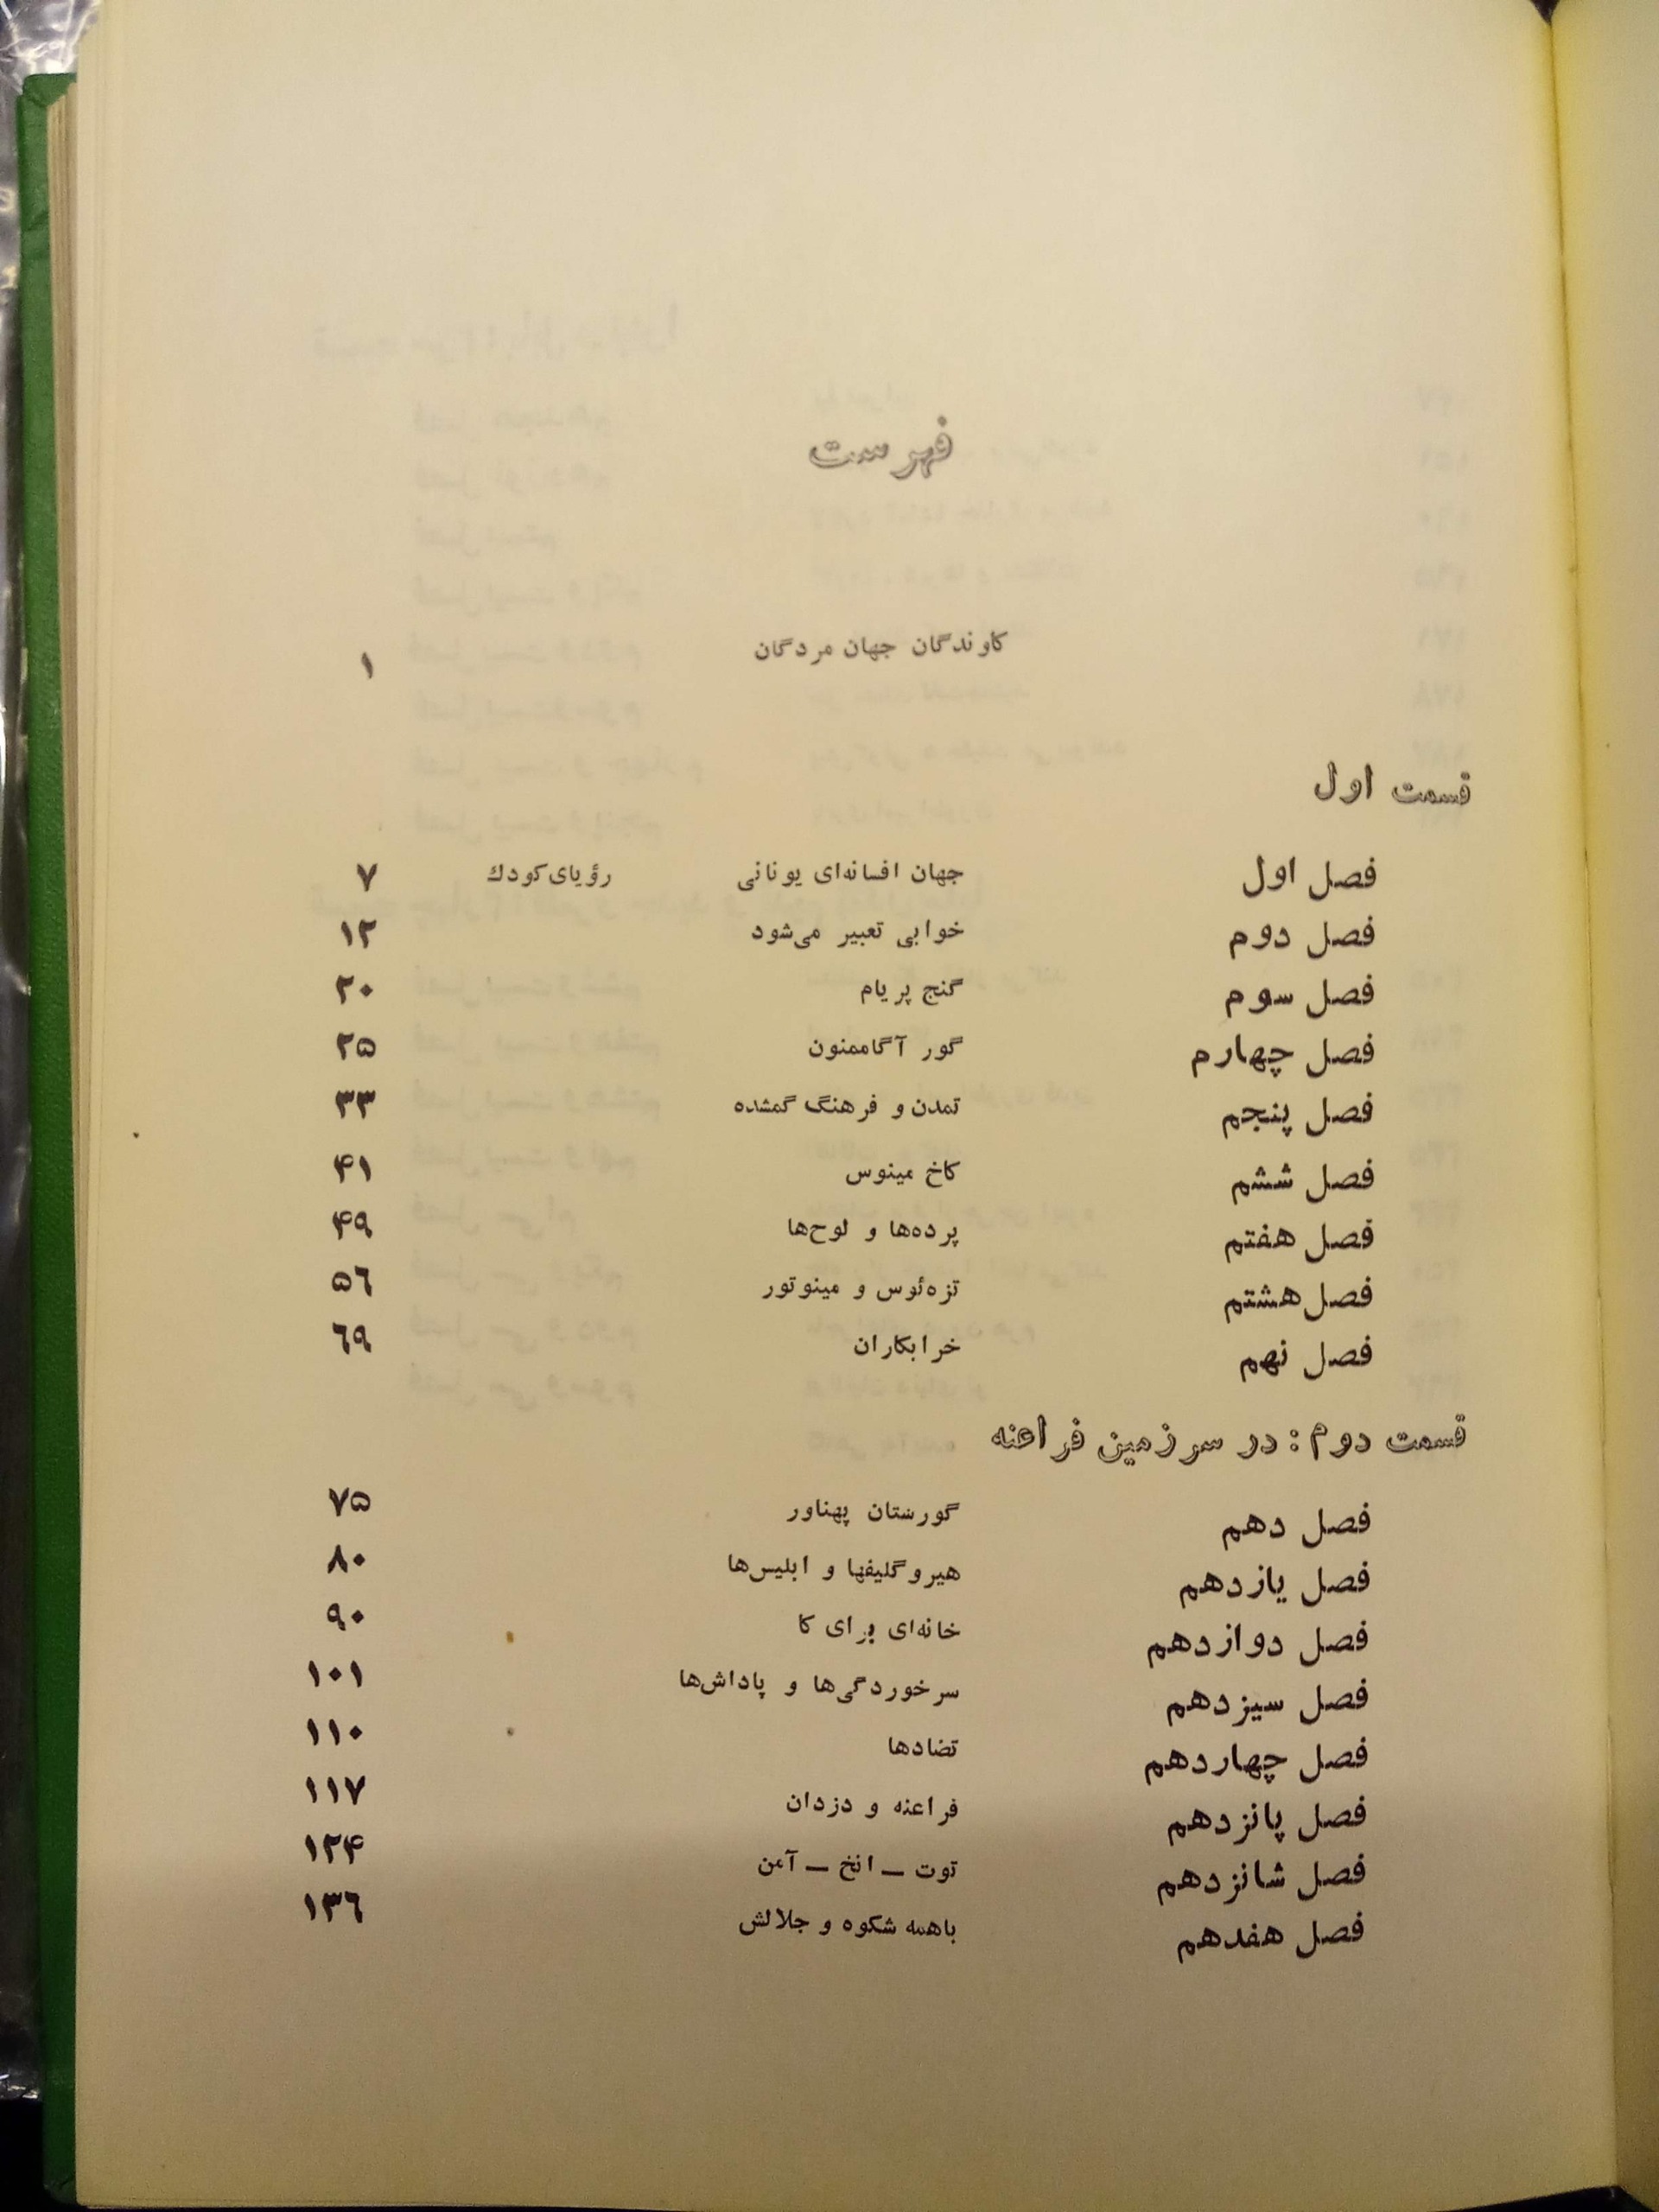 فهرست
کاوندگان جهان مردگان ۱
قسمت اول
فصل اول جهان افسانه‌ای یونانی رؤیای کودك ۷
فصل دوم خوابی تعبیر می‌شود ۱۲
فصل سوم گنج پریام ۲۰
فصل چهارم گور آگاممنون ۲۵
فصل پنجم تمدن و فرهنگ گمشده ۳۳
فصل ششم کاخ مینوس ۴۱
فصل هفتم پرده‌ها و لوح‌ها ۴۹
فصل هشتم تزه‌ئوس و مینوتور ۵۶
فصل نهم خرابکاران ۶۹
قسمت دوم: در سرزمین فراعنه
فصل دهم گورستان پهناور ۷۵
فصل یازدهم هیروگلیفها و ابلیس‌ها ۸۰
فصل دوازدهم خانه‌ای برای کا ۹۰
فصل سیزدهم سرخوردگی‌ها و پاداش‌ها ۱۰۱
فصل چهاردهم تضادها ۱۱۰
فصل پانزدهم فراعنه و دزدان ۱۱۷
فصل شانزدهم توت ـ انخ ـ آمن ۱۲۴
فصل هفدهم باهمه شکوه و جلالش ۱۳۶